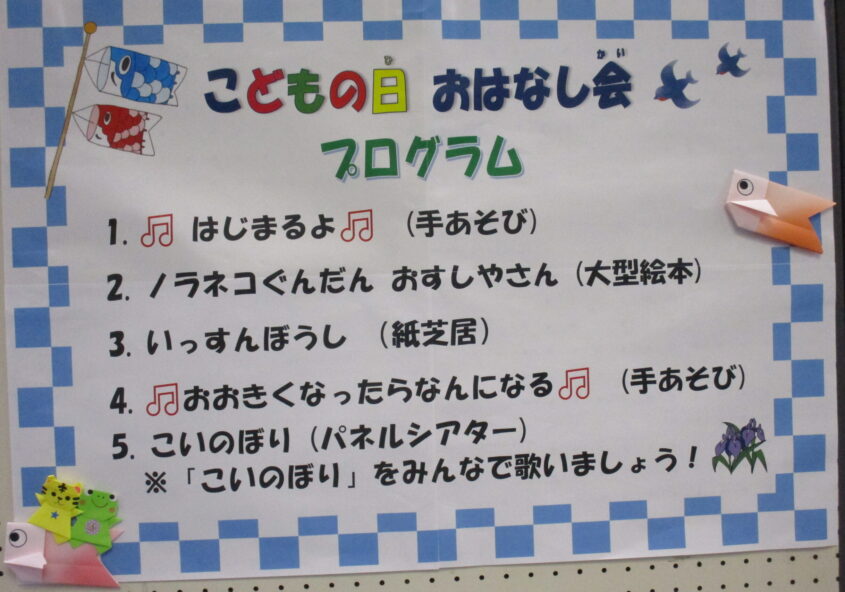 こどもの日 おはなし会
プログラム
1. ♫ はじまるよ♫ (手あそび)
2. ノラネコぐんだん おすしやさん (大型絵本)
3. いっすんぼうし (紙芝居)
4. ♫おおきくなったらなんになる♫ (手あそび)
5. こいのぼり (パネルシアター)
※「こいのぼり」をみんなで歌いましょう!